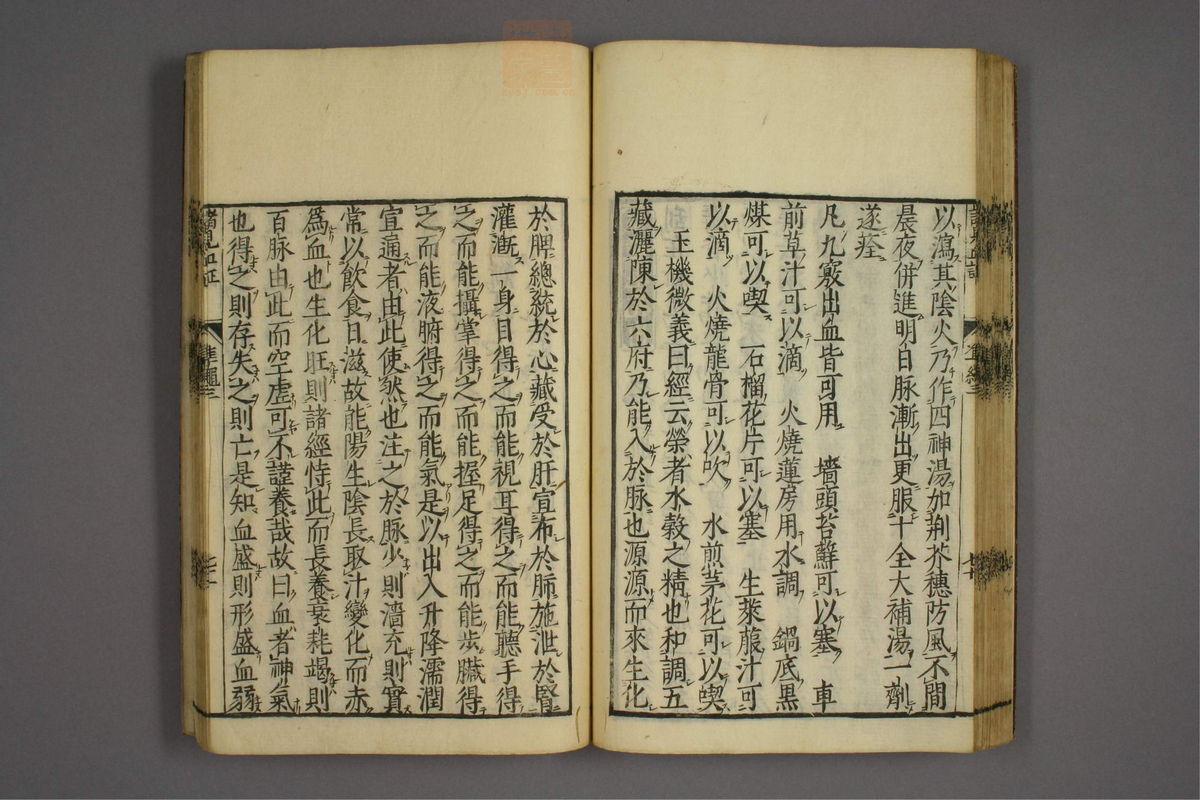 以瀉其陰火乃作四神湯加荆芥穗防風不間
晨夜併進明日脉漸出更服十全大補湯一劑
遂痊
凡九竅出血皆可用　墻頭苔蘚可以塞　車
前草汁可以滴　火燒蓮房用水調　鍋底黒
煤可以喫　石榴花片可以塞　生萊菔汁可
以滴　火燒龍骨可以吹　水煎茅花可以喫
玉機微義曰經云榮者水穀之精也和調五
藏灑陳於六府乃能入於脉也源源而來生化
於脾總統於心藏受於肝宣布於肺施泄於腎
灌漑一身目得之而能視耳得之而能聽手得
之而能攝掌得之而能握足得之而能步臟得
之而能液腑得之而能氣是以出入升降濡潤
宣通者由此使然也注之於脉少則濇充則實
常以飲食日滋故能陽生陰長取汁變化而赤
爲血也生化旺則諸經恃此而長養衰耗竭則
百脉由此而空虚可不謹養哉故曰血者神氣
也得之則存失之則亡是知血盛則形盛血弱